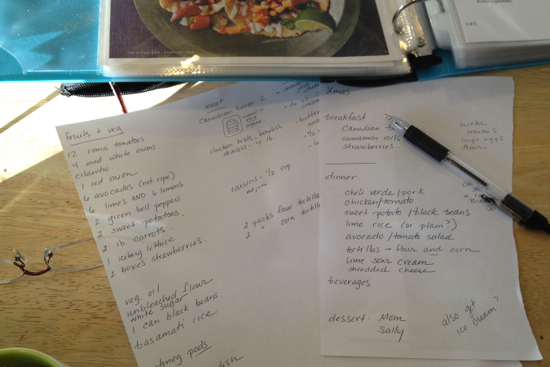 fruits + veg
12 roma tomatoes
4 mnd white onions
cilantro
1 red onion
6 avocados (not ripe)
6 limes AND 6 lemons
2 green bell peppers
2 sweet potatoes
2 lb carrots
1 iceberg lettuce
2 boxes strawberries
veg oil
unbleached flour
white sugar
1 can black beans
basamati rice
pods
meat
Canadian bacon 2
chicken
raisins - 1/2 cup
2 packs flour tortillas
2 " corn tortillas
Xmas
breakfast
Canadian
cinnamon rolls
strawberries
butter
lemons
large eggs
flour
dinner
chili verde/pork
chicken/tomato
sweet potato/black beans
lime rice (or plain?)
avocado/tomato salad
tortillas - flour and corn
lime sour cream
shredded cheese
beverages
dessert Mom
Sally
also get
ice cream?